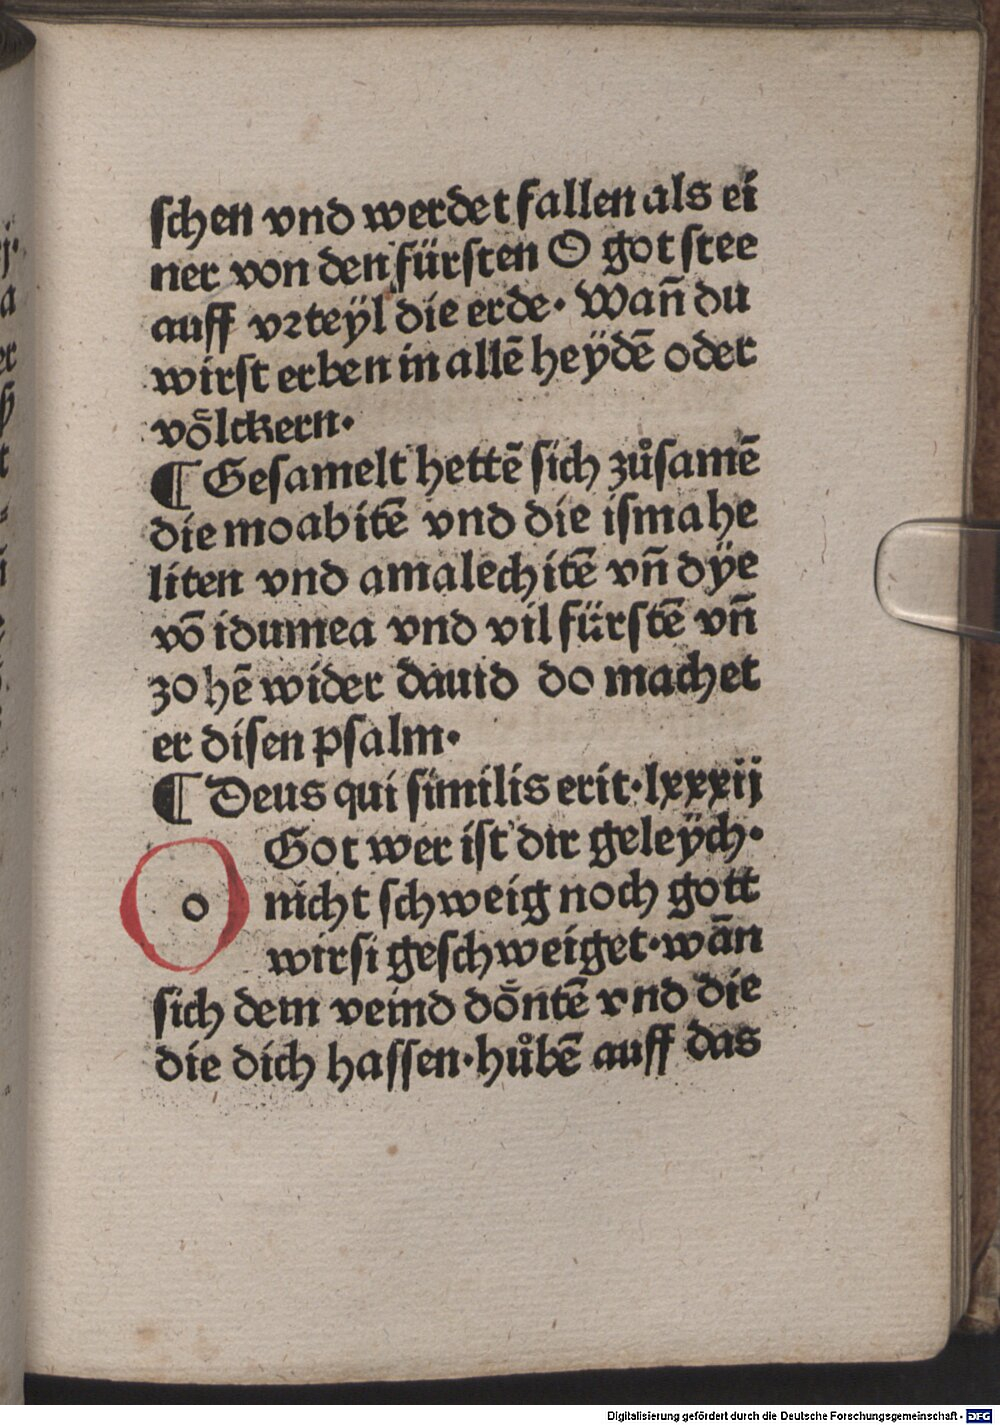 schen vnd werdet fallen als ei
ner von den fürsten O got stee
auff vꝛteÿl die erde· Wañ du
wirst erben in allē heÿdē oder
voͤlckern·
¶ Gesamelt hettē sich zůsamē
die moabitē vnd die ismahe
liten vnd amalechitē vñ dÿe
vō idumea vnd vil fürstē vñ
zohē wider dauid do machet
er disen psalm·
¶ Deus qui similis erit·lxxxij
o Got wer ist dir geleÿch·
nicht schweig noch gott
wirsi geschweiget·wān
sich dem veind doͤntē vnd die
die dich hassen·hůbē auff das
Digitalisierung gefördert durch die Deutsche Forschungsgemeinschaft - DFG